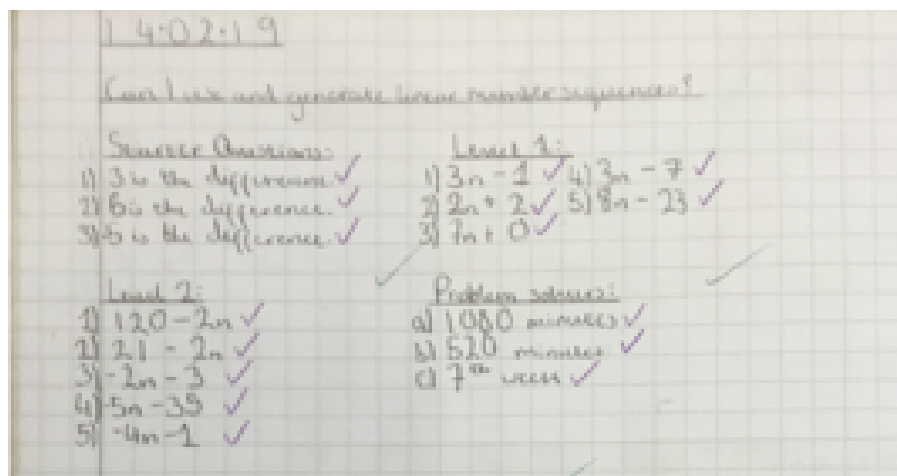 14.02.19
Can I use and generate linear number sequences?
Starter Questions:
1) 3 is the difference.
2) 6 is the difference.
3) -5 is the difference.
Level 1:
1) 3n - 1
2) 2n + 2
3) 7n + 0
4) 3n - 7
5) 8n - 23
Level 2:
1) 120 - 2n
2) 21 - 2n
3) -2n - 3
4) -5n - 39
5) -4n - 1
Problem solvers:
a) 1080 minutes
b) 520 minutes
c) 7th week